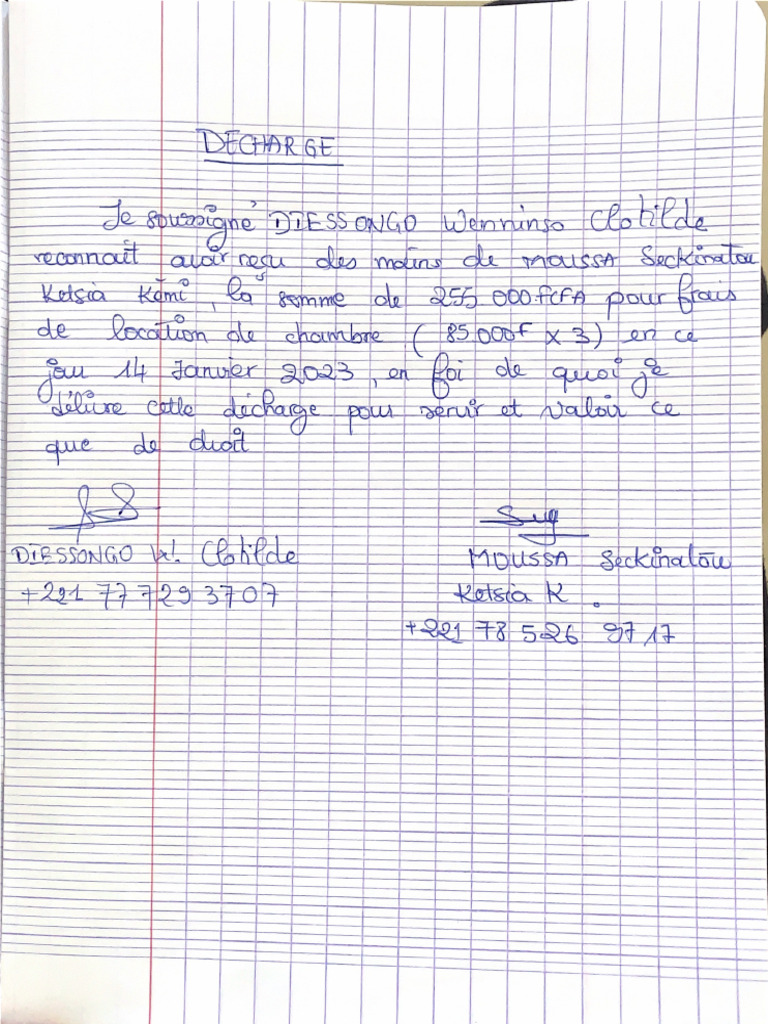 DECHARGE
Je soussigné DIESSONGO Wenninso Clotilde
reconnait avoir reçu des mains de MOUSSA Seckinatou
Ketsia Kėmi, la somme de 255 000 FCFA pour frais
de location de chambre (85 000F x 3) en ce
jour 14 Janvier 2023, en foi de quoi je
délivre cette décharge pour servir et valoir ce
que de droit
DIESSONGO W. Clotilde
+221 77 729 37 07
MOUSSA Seckinatou
Ketsia K.
+221 78 526 97 17